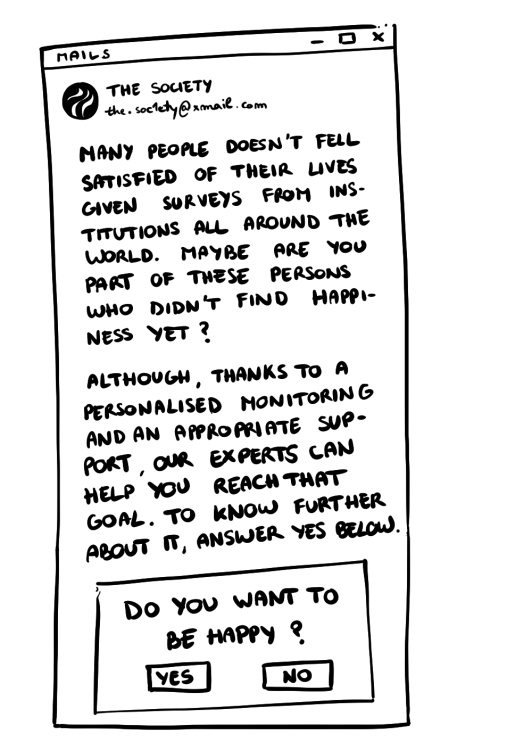 MAILS
THE SOCIETY
the.soc1ety@xmail.com
MANY PEOPLE DOESN'T FELL
SATISFIED OF THEIR LIVES
GIVEN SURVEYS FROM INS-
TITUTIONS ALL AROUND THE
WORLD. MAYBE ARE YOU
PART OF THESE PERSONS
WHO DIDN'T FIND HAPPI-
NESS YET ?
ALTHOUGH, THANKS TO A
PERSONALISED MONITORING
AND AN APPROPRIATE SUP-
PORT, OUR EXPERTS CAN
HELP YOU REACH THAT
GOAL. TO KNOW FURTHER
ABOUT IT, ANSWER YES BELOW.
DO YOU WANT TO
BE HAPPY ?
YES NO